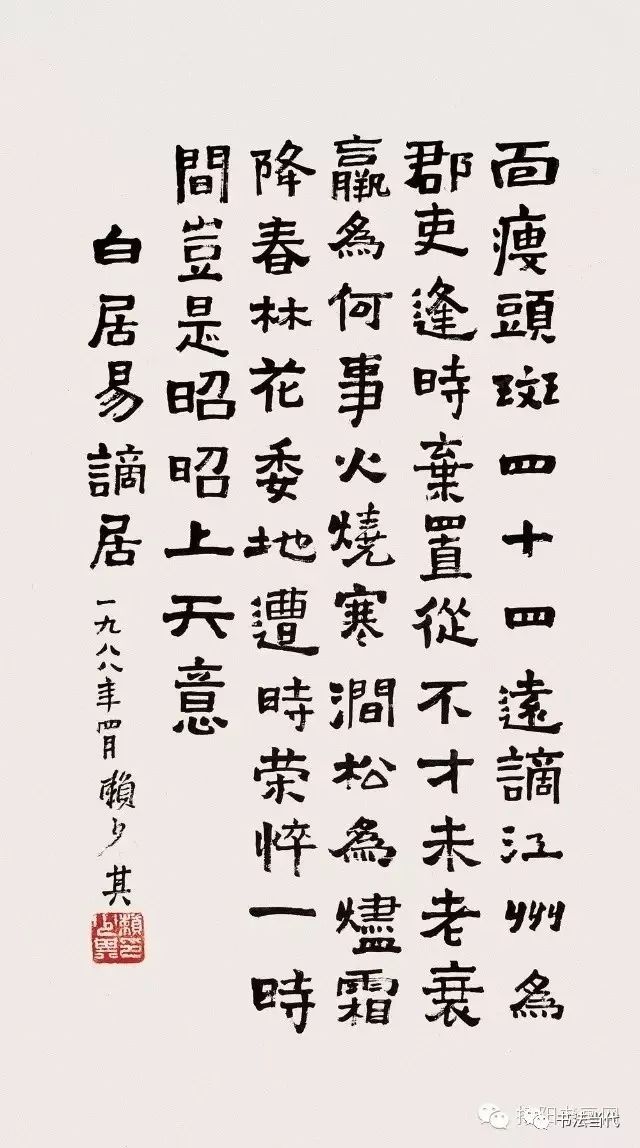 面瘦頭斑四十四遠謫江州為
郡吏逢時棄置從不才未老衰
羸為何事火燒寒澗松為燼霜
降春林花委地遭時荣悴一時
間豈是昭昭上天意
白居易謫居
一九八八年四月賴少其
書法当代